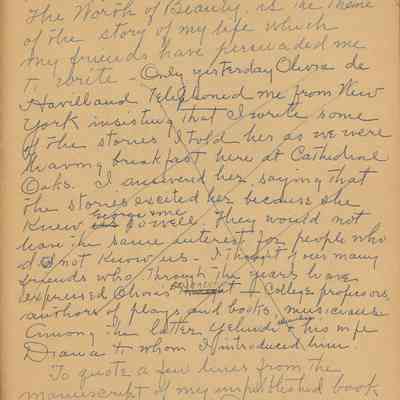 The Worth of Beauty, is the theme
of the story of my life which
my friends have persuaded me
to write - Only yesterday Olivia de
Havilland Telephoned me from New
York insisting that I write some
of the stories I told her as we were
having breakfast here at Cathedral
Oaks. I answered her, saying that
the stories excited her because she
knew George me so well. They would not
have the same interest for people who
do not know us - I thought of our many
friends who through the years have
expressed Olivia's + College professors,
authors of plays and books, musicians
Among the latter Yehudi Menuhin + his wife
Diana to whom I introduced him.
To quote a few lines from the
manuscript of my unpublished book